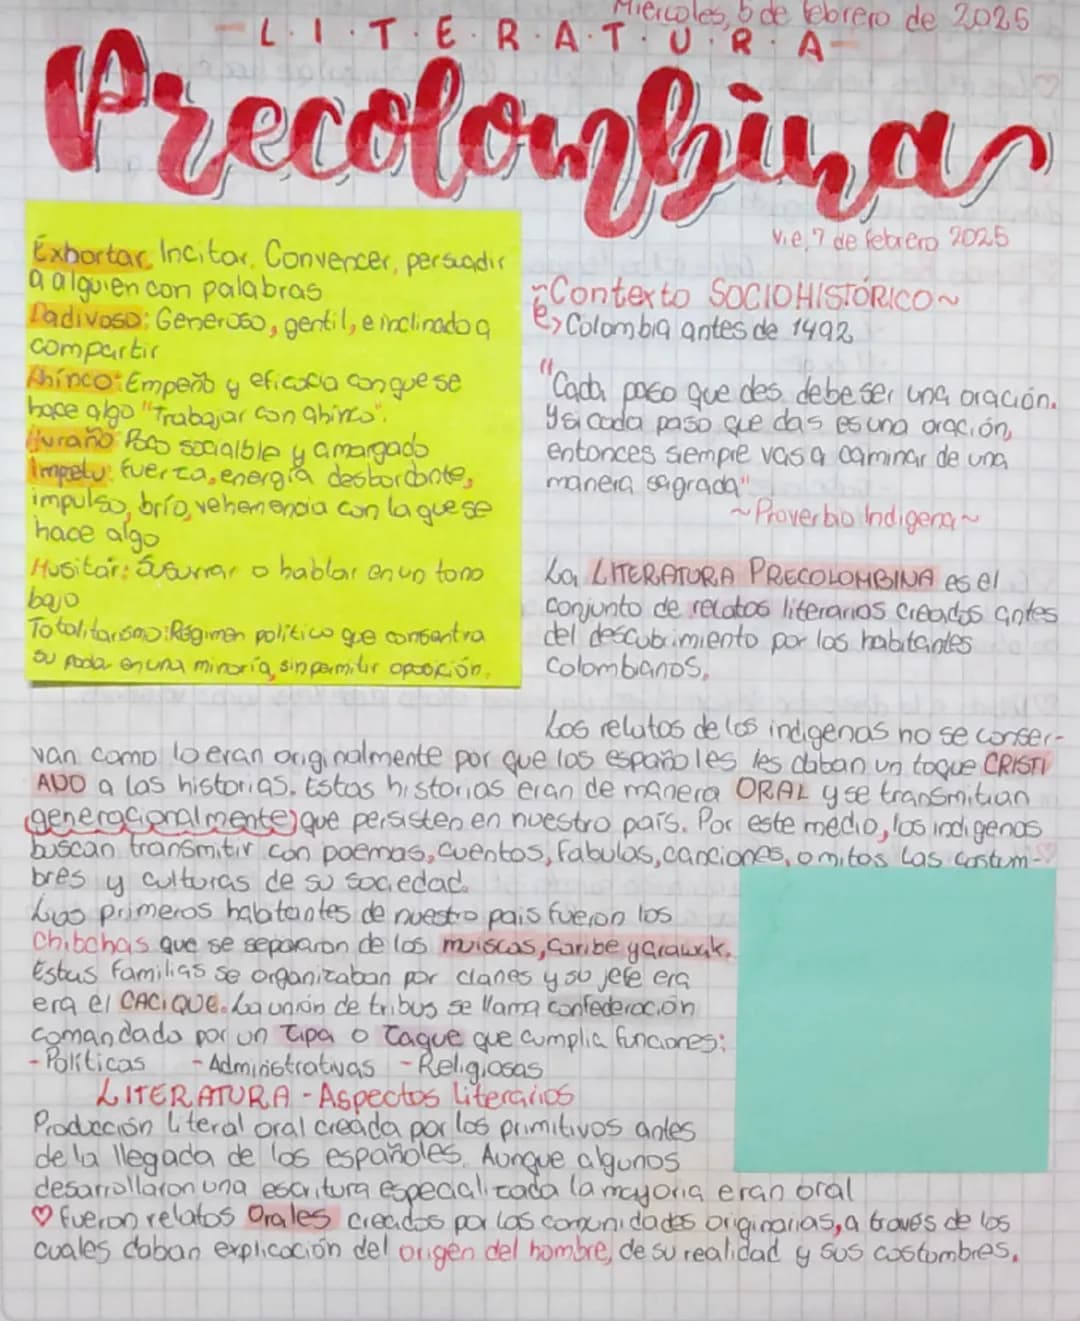 Miércoles, 5 de febrero de 2025
-L.I.T.E.R.A.T.U.R.A-
Precolombina
Vie, 7 de febrero 2025
Exhortar: Incitar, Convencer, persuadir
a alguien con palabras
Dadivoso: Generoso, gentil, e inclinado a
compartir
Ahinco: Empeño y eficacia con que se
hace algo "Trabajar con ahinco".
Huraño: Poco socialble y amargado
Impetu: fuerza, energía desbordante,
impulso, brío, vehemencia con la que se
hace algo
Musitar: Susurrar o hablar en un tono
bajo
Totalitarismo: Régimen político que consentra
su poder en una minoría, sin permitir oposición.
~Contexto SOCIOHISTÓRICO~
↳ Colombia antes de 1492
"Cada paso que des debe ser una oración.
Y si cada paso que das es una oración,
entonces siempre vas a caminar de una
manera sagrada"
~Proverbio Indigena~
La LITERATURA PRECOLOMBINA es el
conjunto de relatos literarios creados antes
del descubrimiento por los habitantes
colombianos.
Los relatos de los indigenas no se conser-
van como lo eran originalmente por que los españoles les daban un toque CRISTI
ANO a las historias. Estas historias eran de manera ORAL y se transmitian
(generacionalmente) que persisten en nuestro país. Por este medio, los indigenas
buscan transmitir con poemas, cuentos, fabulas, canciones, o mitos las costum-
bres y culturas de su sociedad.
Los primeros habitantes de nuestro pais fueron los
Chibchas que se separaron de los muiscas, Caribe y arawak.
Estas familias se organizaban por clanes y su jefe era
era el CACIQUE. La unión de tribus se llama confederación
comandado por un Zipa o Zaque que cumplia funciones:
- Políticas - Administrativas - Religiosas
LITERATURA - Aspectos literarios
Producción literal oral creada por los primitivos antes
de la llegada de los españoles. Aunque algunos
desarrollaron una escritura especializada la mayoria eran oral
♡ fueron relatos Orales creados por las comunidades originarias, a través de los
cuales daban explicación del origen del hombre, de su realidad y sus costumbres.